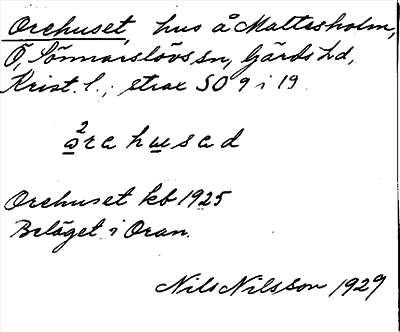 Orehuset hus å Mattesholm,
Ö, Sönnarslövs sn, Gärds hd,
Krist. l.; strax SO 9 i 19.
²årahusad
Orehuset kb 1925
Beläget i Oran.
Nils Nilsson 1929